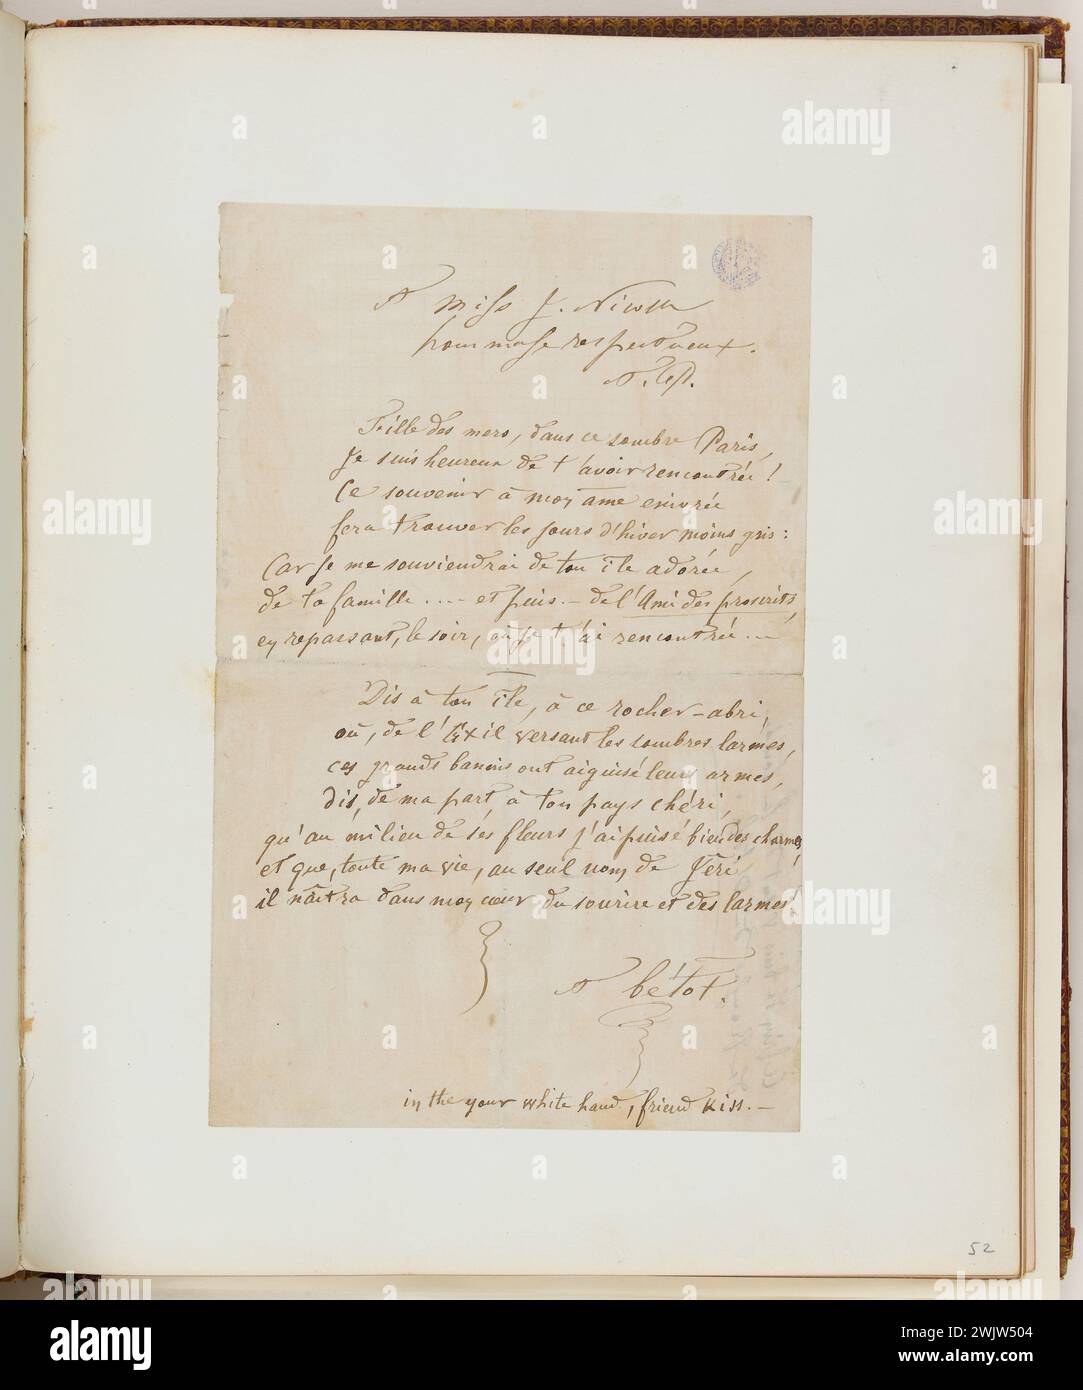 A Miss J.
hommage respectueux.
Fille des mers, dans ce sombre Paris,
Je suis heureux de t'avoir rencontrée !
Ce souvenir à mon âme enivrée
fera trouver les jours d'hiver moins gris :
Car je me souviendrai de ton île adorée,
de ta famille .... et puis - de l'Ami des proscrits,
en repassant, le soir, où je t'ai rencontrée ...
Dis à ton île, à ce rocher-abri,
où, de l'Exil versant les sombres larmes,
ces grands bannis ont aiguisé leurs armes,
dis, de ma part, à ton pays chéri,
qu'au milieu de ses fleurs j'ai puisé bien des charmes,
et que, toute ma vie, au seul nom de Jéri
il naîtra dans mon cœur du sourire et des larmes !
A bétot.
in the your white hand, friend kiss. -
52
alamy
Image ID: 2WJW504
www.alamy.com